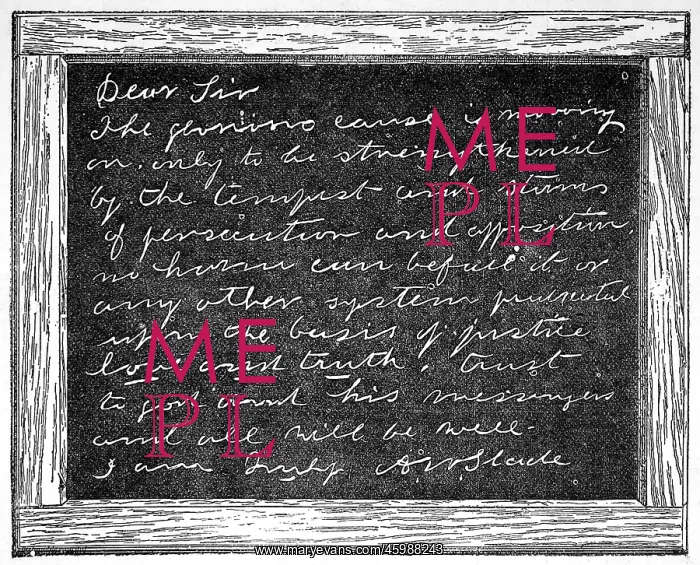 Dear Sir
The glorious cause is moving
on, only to be strengthened
by the tempest and storms
of persecution and opposition.
no harm can befall it or
any other system predicated
upon the basis of justice
love and truth. trust
to god and his messengers
and all will be well.
I am truly A W Slade
ME
PL
ME
PL
www.maryevans.com/45988243